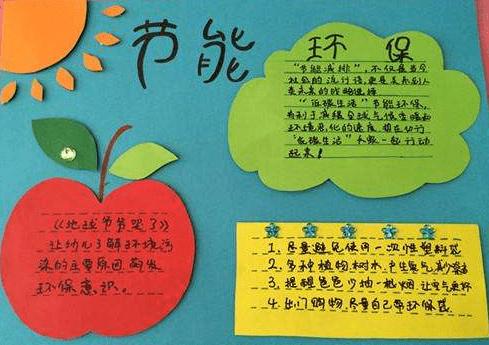 节能
环 保
"节能减排",不仅是当今
社会的流行语,更是关系到人
类未来的战略选择
"低碳生活"节能环保,
有利于减缓全球气候变暖和
环境恶化的速度
"低碳生活" 一起行动
起来!
《地球爷爷哭了》
让幼儿了解环境污
染的主要原因,萌发
环保意识。
1、尽量避免使用一次性塑料袋
2、多种植物,树木,产生氧气,减少
3、提醒爸爸少抽一根烟 让空气
4、出门购物,尽量自己带环保袋